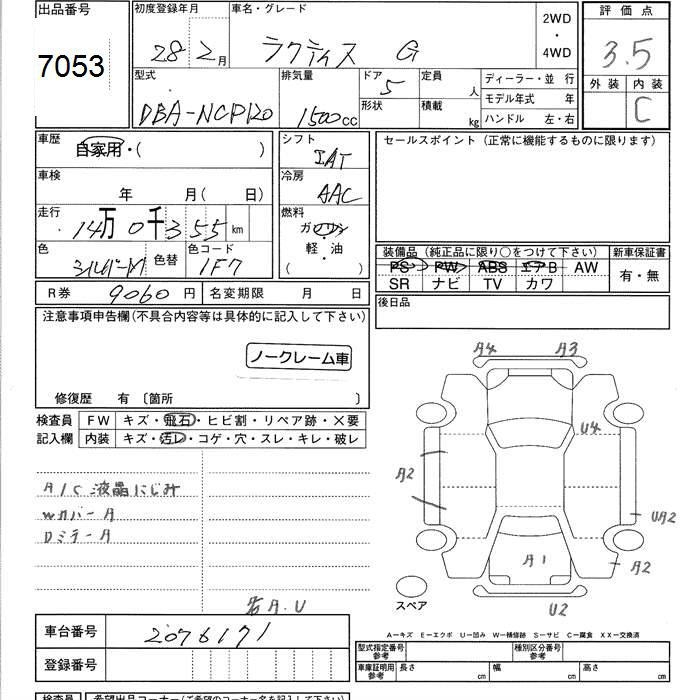 出品番号 初度登録年月 車名・グレード 2WD・4WD 評価点
7053 28 2月 ラクティス G 3.5
型式 排気量 ドア 定員 ディーラー・並行 外装 内装
DBA-NCP120 1500cc 5 人 モデル年式 年 C
形状 積載 kg ハンドル 左・右
車歴 自家用・( ) シフト IAT セールスポイント(正常に機能するものに限ります)
車検 年 月(日) 冷房 AAC
走行 14万0千355km 燃料 ガソリン・軽・油( )
色 シルバーM 色替 色コード 1F7
装備品(純正品に限り○をつけて下さい) 新車保証書
PS PW ABS エアB AW 有・無
SR ナビ TV カワ
R券 9060円 名変期限 月 日 後日品
注意事項申告欄(不具合内容等は具体的に記入して下さい)
ノークレーム車
修復歴 有〔箇所 〕
検査員 FW キズ・飛石・ヒビ割・リペア跡・×要
記入欄 内装 キズ・汚レ・コゲ・穴・スレ・キレ・破レ
A4 A3
U4
A2 UA2
A1 A2
U2
スペア
A/C液晶にじみ
WカバーA
DミラーA
各A.U
車台番号 2076171
登録番号
A−キズ E−エクボ U−凹み W−補修跡 S−サビ C−腐食 XX−交換済
型式指定番号 参考 種別区分番号 参考
車庫証明用 参考 長さ cm 幅 cm 高さ cm
検査員 希望出品コーナー(ご希望のコーナー名を記入して下さい)